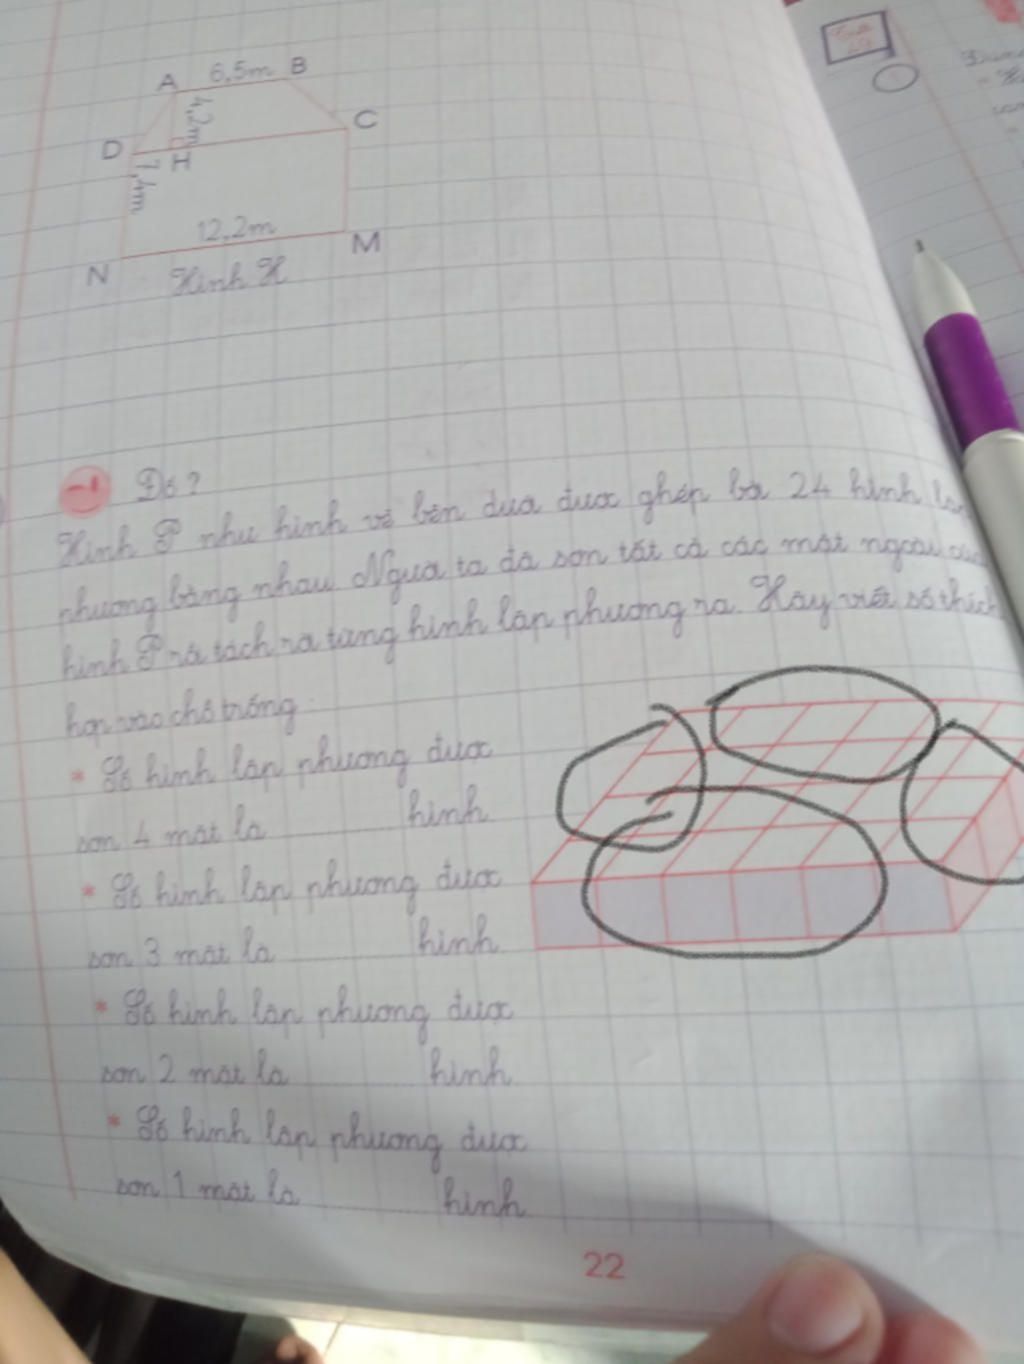 A 6,5m B
4,2m
C
D
H
7,4m
12,2m
N
M
Hình H
Đố?
Hình P như hình vẽ bên dưới được ghép bởi 24 hình lập
phương bằng nhau. Người ta đã sơn tất cả các mặt ngoài của
hình P rồi tách ra từng hình lập phương ra. Hãy viết số thích
hợp vào chỗ trống:
* Số hình lập phương được
sơn 4 mặt là hình
* Số hình lập phương được
sơn 3 mặt là hình
* Số hình lập phương được
sơn 2 mặt là hình
* Số hình lập phương được
sơn 1 mặt là hình
22